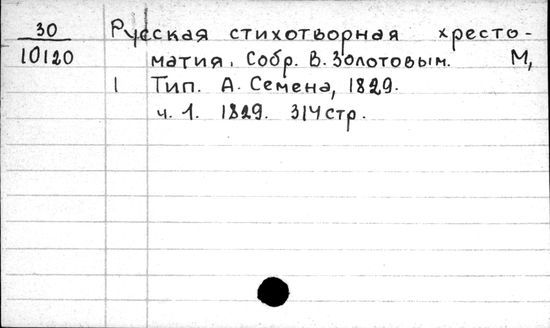 30
10120
Русская стихотворная хресто-
матия. Собр. В. Золотовым. М,
1 Тип. А. Семена, 1829.
ч. 1. 1829. 314 стр.